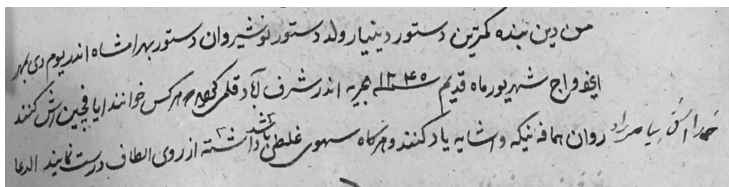 من دین بنده کمترین دستور دینیار ولد دستور نوشیروان دستور بهرامشاه اندر یوم دی بمهر
و ماج شهریور ماه قدیم سنه ۱۲۴۵ هجریه اندر شرف آباد قلمی هر کس خوانند کنند
روان همافه نیکه و اشایه یاد کنند و هر گاه سهوی غلطی باشد داشته از روی الطاف درست نمایند الدعا